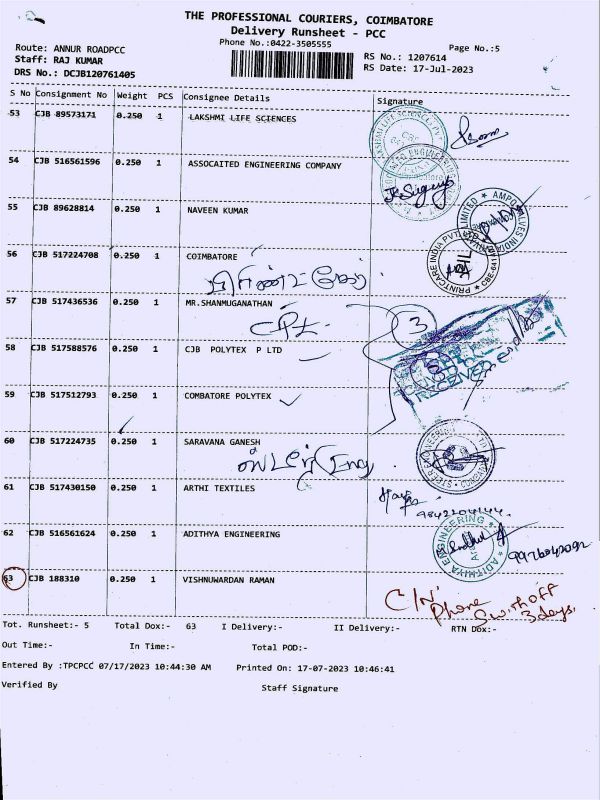 THE PROFESSIONAL COURIERS, COIMBATORE
Delivery Runsheet - PCC
Phone No.:0422-3505555
Page No.:5
Route: ANNUR ROADPCC
Staff: RAJ KUMAR
DRS No.: DCJB120761405
RS No.: 1207614
RS Date: 17-Jul-2023
S No Consignment No Weight PCS Consignee Details Signature
53 CJB 89573171 0.250 1 LAKSHMI LIFE SCIENCES
54 CJB 516561596 0.250 1 ASSOCAITED ENGINEERING COMPANY
55 CJB 89628814 0.250 1 NAVEEN KUMAR
56 CJB 517224708 0.250 1 COIMBATORE
57 CJB 517436536 0.250 1 MR.SHANMUGANATHAN
3
58 CJB 517588576 0.250 1 CJB POLYTEX P LTD
RECEIVED
59 CJB 517512793 0.250 1 COMBATORE POLYTEX
60 CJB 517224735 0.250 1 SARAVANA GANESH
Eng
61 CJB 517430150 0.250 1 ARTHI TEXTILES
9842204144
62 CJB 516561624 0.250 1 ADITHYA ENGINEERING
ADITHIYA ENGINEERING
63 CJB 188310 0.250 1 VISHNUWARDAN RAMAN
C/N
Phone Switch off
3 days.
Tot. Runsheet:- 5 Total Dox:- 63 I Delivery:- II Delivery:- RTN Dox:-
Out Time:- In Time:- Total POD:-
Entered By :TPCPCC 07/17/2023 10:44:30 AM Printed On: 17-07-2023 10:46:41
Verified By Staff Signature